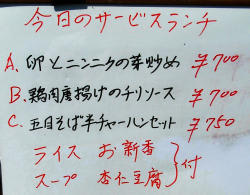 今日のサービスランチ
A. 卵とニンニクの芽炒め ¥700
B. 鶏肉唐揚げのチリソース ¥700
C. 五目そば半チャーハンセット ¥750
ライス お新香
スープ 杏仁豆腐 } 付